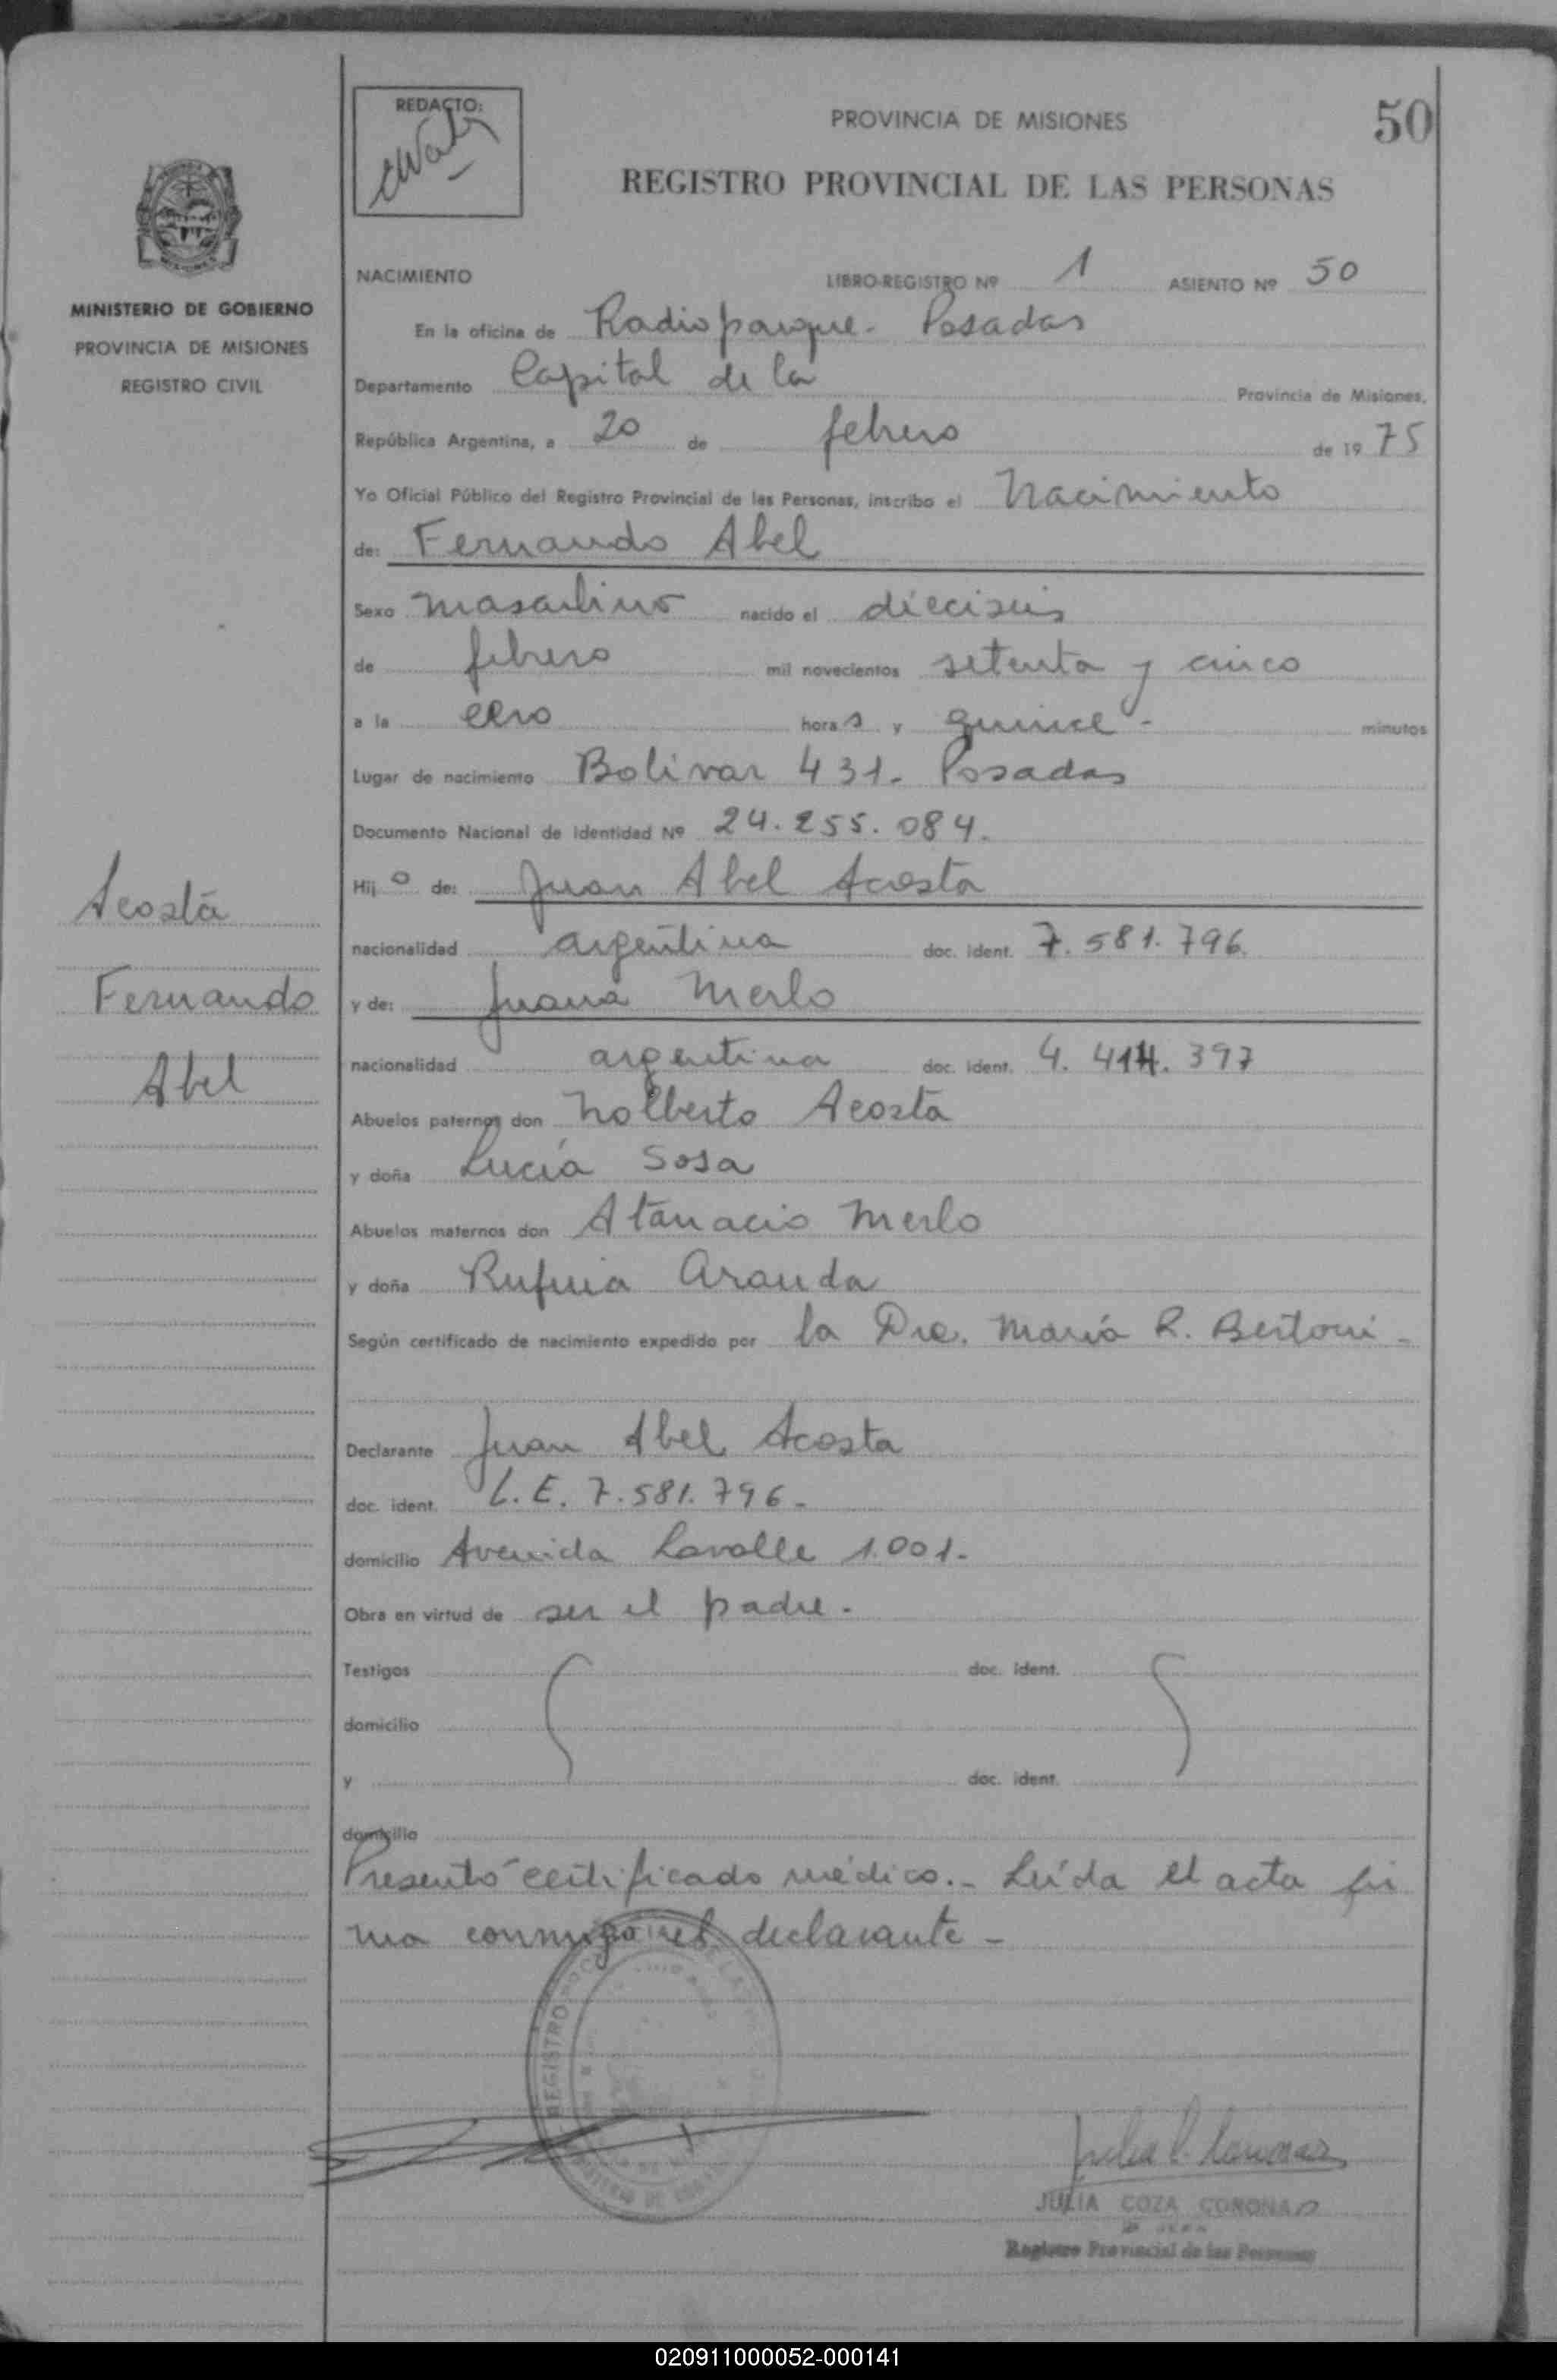 50
REDACTO:
PROVINCIA DE MISIONES
REGISTRO PROVINCIAL DE LAS PERSONAS
MINISTERIO DE GOBIERNO
PROVINCIA DE MISIONES
REGISTRO CIVIL
NACIMIENTO LIBRO-REGISTRO Nº 1 ASIENTO Nº 50
En la oficina de Radioparque - Posadas
Departamento Capital de la Provincia de Misiones,
República Argentina, a 20 de febrero de 1975
Yo Oficial Público del Registro Provincial de las Personas, inscribo el Nacimiento
de: Fernando Abel
Sexo masculino nacido el dieciseis
de febrero mil novecientos setenta y cinco
a la cero horas y quince - minutos
Lugar de nacimiento Bolivar 431 - Posadas
Documento Nacional de Identidad Nº 24.255.084.
Hijo de: Juan Abel Acosta
nacionalidad argentina doc. ident. 7.581.796.
y de: Juana Merlo
nacionalidad argentina doc. ident. 4.414.397
Abuelos paternos don Nolberto Acosta
y doña Lucía Sosa
Abuelos maternos don Atanacio Merlo
y doña Rufina Aranda
Según certificado de nacimiento expedido por la Dra. María R. Bertoni -
Declarante Juan Abel Acosta
doc. ident. L.E. 7.581.796 -
domicilio Avenida Lavalle 1.001 -
Obra en virtud de ser el padre -
Testigos doc. ident.
domicilio
y doc. ident.
domicilio
Presentó certificado médico.- Leída el acta fir
ma conmigo el declarante -
Acosta
Fernando
Abel
REGISTRO
JULIA COZA CORONAO
Registro Provincial de las Personas
020911000052-000141